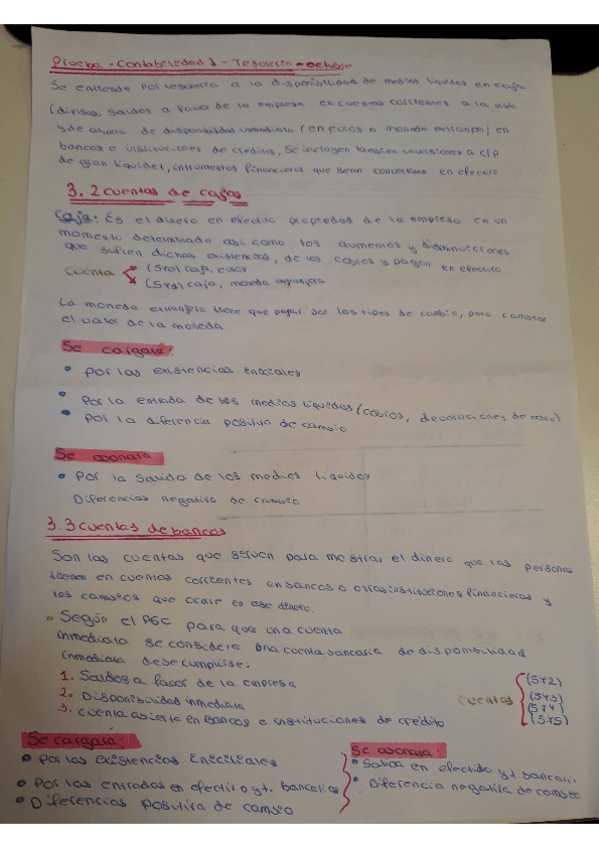 Prueba - Contabilidad 1 - Tesorería - octubre
Se entiende por tesorería a la disponibilidad de medios líquidos en caja
(divisa, saldos a favor de la empresa en cuentas corrientes a la vista
y de ahorro de disponibilidad inmediata (en euros o moneda extranjera) en
bancos e instituciones de crédito, Se incluyen también inversiones a c/p
de gran liquidez, intrumentos financieros que sean convertirse en efectivo
3. 2 cuentas de cajas
Caja: Es el dinero en efectivo propiedad de la empresa en un
momento determinado así como los aumentos y disminuciones
que sufren dichas existencias, de los cobros y pagos en efectivo
cuenta
(570) caja, euros
(570) caja, moneda extranjera
La moneda extranjera tiene que pasar por los tipos de cambio, para cambiar
el valor de la moneda
Se cargará:
• por las existencias iniciales
• Por la entrada de los medios líquidos (cobros, devoluciones de cobro)
• Por la diferencia positiva de cambio
Se abonara
• por la salida de los medios liquidos
Diferencias negativa de cambio
3.3 cuentas de bancos
Son las cuentas que sirven para mostrar el dinero que las personas
tienen en cuentas corrientes en bancos o otras instituciones financieras y
los cambios que ocurre en ese dinero.
• Según el PGC para que una cuenta
inmediata se considere una cuenta bancaria de disponibilidad
inmediata debe cumplirse:
1. Saldos a favor de la empresa
2. Disponibilidad inmediata
3. cuenta abierta en bancos e instituciones de crédito
cuentas
(572)
(573)
(574)
(575)
Se cargará:
• Por las existencias iniciales
• Por las entradas en efectivo y t. bancarias
• Diferencias positiva de cambio
Se abonara:
• Salida en efectivo y t bancaria
• Diferencia negativa de cambio